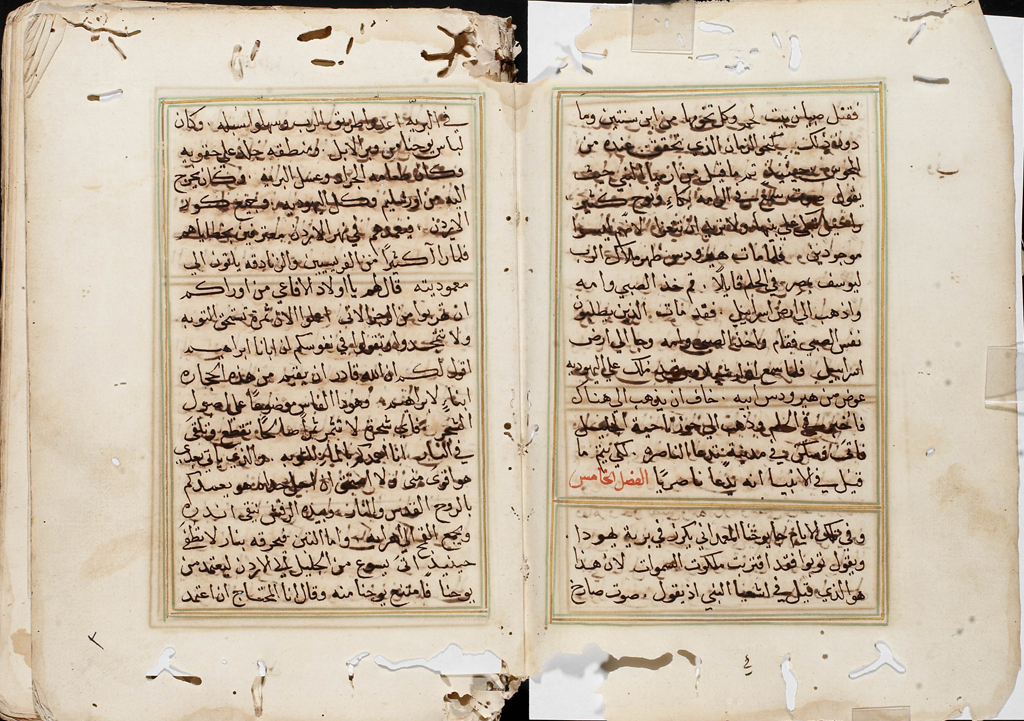 فقتل صبيان بيت لحم وكل تخومها من ابن سنتين وما
دون ذلك كنحو الزمان الذي تحقق عنده من
المجوس حينئذ تم ما قيل من ارميا النبي حيث
يقول صوت سمع في الرامه بكاء ونوح كثير
راحيل تبكي على بنيها ولا تريد ان تتعزى لانهم ليسوا
موجودين فلما مات هيرودس ظهر ملاك الرب
ليوسف بمصر في الحلم قايلًا قم خذ الصبي وامه
واذهب الى ارض اسراييل فقد مات الذين يطلبون
نفس الصبي فقام واخذ الصبي وامه وجا الى ارض
اسراييل فلما سمع ان ملك على اليهوديه
عوض من هيرودس ابيه خاف ان يذهب الى هناك
في الحلم وذهب الى حوز ناحية الجليل
فاتى فسكن في مدينة تدعا الناصره لكي يتم ما
قيل في الانبيا انه يدعا ناصريًا الفصل الخامس
وفي تلك الايام جا يوحنا المعمداني يكرز في برية يهودا
ويقول توبوا فقد اقتربت ملكوت السموات لان هذا
هو الذي قيل في اشعيا النبي اذ يقول صوت صارخ
٤
في البريه اعدوا طريق الرب وسهلوا سبله وكان
لباس يوحنا من وبر الابل ومنطقه جلد على حقويه
وكان طعامه الجراد وعسل البريه وكان يخرج
اليه من اورشليم وكل اليهوديه وجميع كور
الاردن فيعمدهم في نهر الاردن معترفين بخطاياهم
فلما راآ كثيرًا من الفريسيين والزنادقه ياتون الى
معموديته قال لهم يا اولاد الافاعي من اوراكم
ان تهربوا من الرجز الاتي اعملوا الان ثمرة تستحق التوبه
ولا وتقولوا في نفوسكم ان ابانا ابراهيم
اقول لكم ان الله قادر ان يقيم من هذه الحجاره
ابناء لابراهيم وهوذا الفاس موضوعًا على اصول
الشجر فاي شجرة لا تثمر ثمرًا صالحًا تقطع وتلقى
في النار انا اعمدكم بالما للتوبه والذي ياتي بعدي
هو اقوى منى ولا استحق ان احمل حذاه هو يعمدكم
بالروح القدس والنار وبيده الرفش ينقي اندره
ويجمع القمح الى اهرايه واما التبن فيحرقه بنار لا تطفى
حينيذ اتى يسوع من الجليل الى الاردن ليعتمد من
يوحنا فامتنع يوحنا منه وقال انا المحتاج ان اعتمد
٣